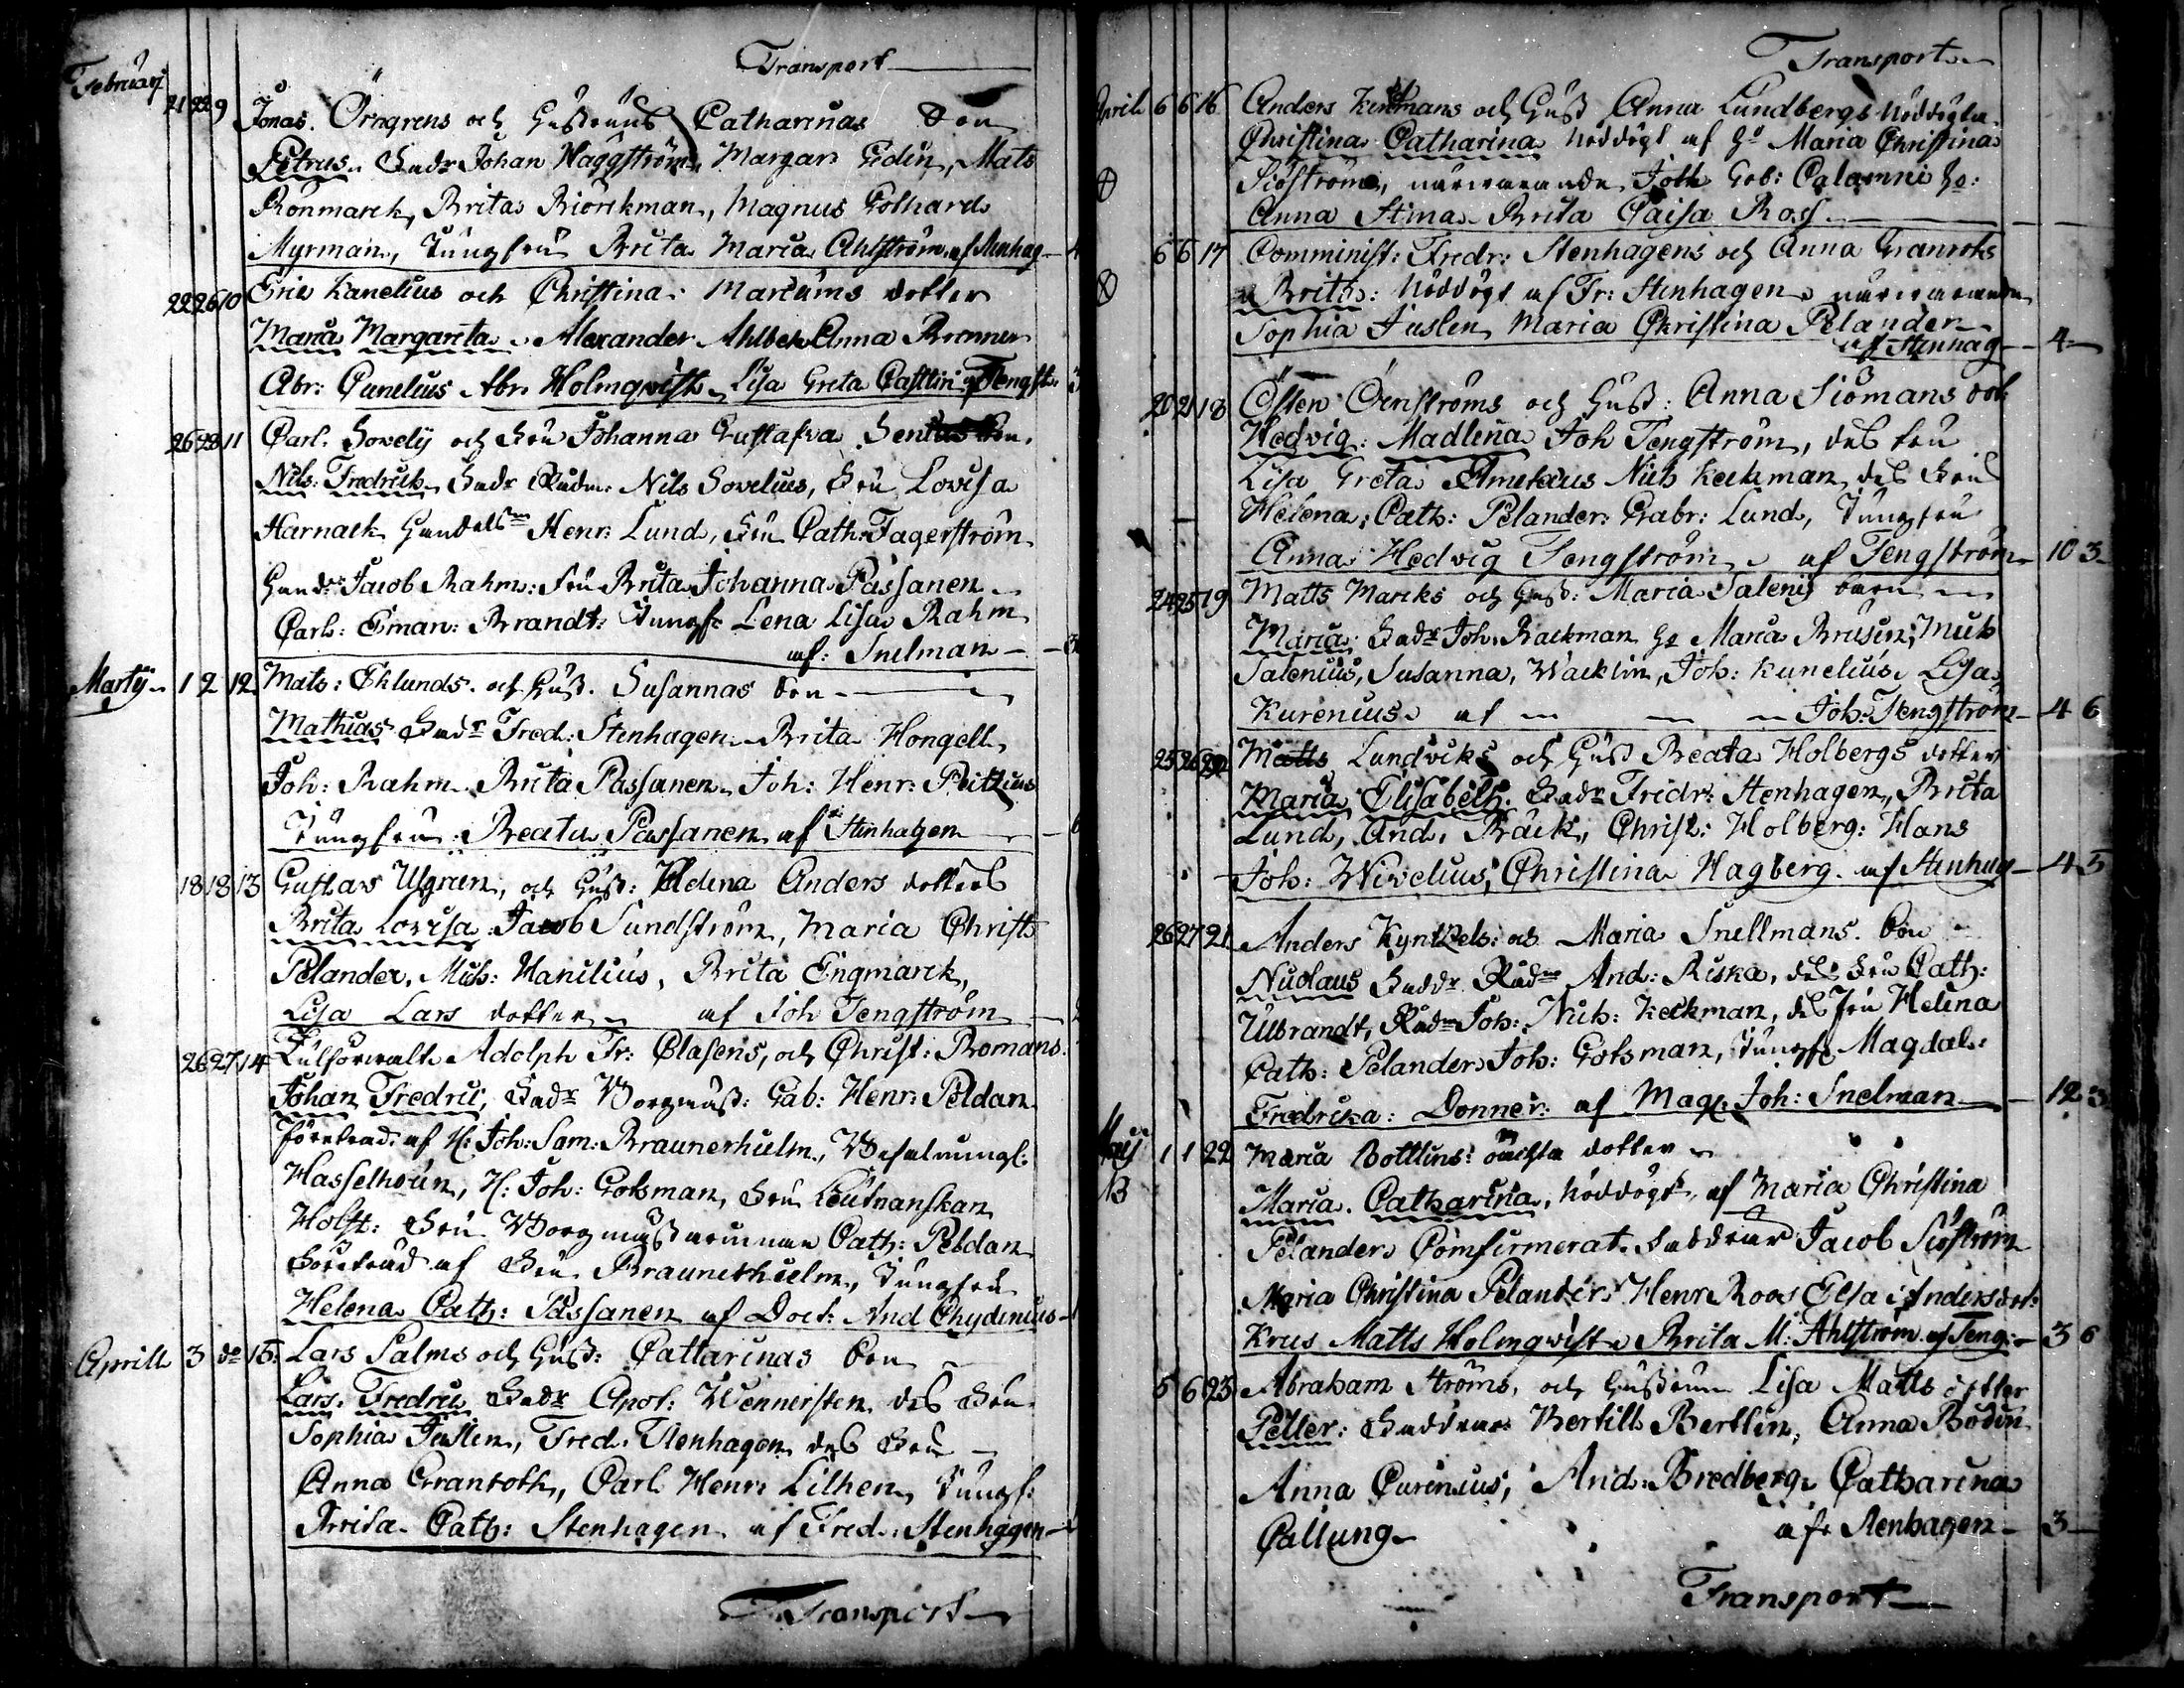 Transport
Februarij
21 22 9 Jonas Örngrens och Hustruns Catharinas Son
Petrus. Fadr Johan Häggström, Margar: Gedin, Mats
Rönmarck, Brita Biörckman, Magnus Gothard
Myrman, Jungfru Brita Maria Ahlström af Stenhag
22 26 10 Eric Kanelius och Christina Marcums dotter
Maria Margareta. Alexander Ahlbek Anna Brenner
Abr: Canelius Abr. Holmqvist Lisa Greta Castlin af Tengst:
26 28 11 Carl Sovelij och fru Johanna Gustafva
Nils Fredrick Fadr Rådm: Nils Sovelius, Fru Lovisa
Harnack Handelsm Henr: Lund, Fru Cath: Fagerström
Hand: Jacob Rahm: Fru Brita Johanna Passanen
Carl: Eman: Brandt: Jungfr Lena Lisa Rahm
af: Snelman
Martij 1 2 12 Mats: Eklunds och Hust. Susannas Son
Mathias Fadr Fred: Stenhagen Brita Hongell
Joh: Rahm Brita Passanen Joh: Henr:
Jungfru: Beata Passanen af Stenhagen
18 18 13 Gustav Ulgren, och Hust: Helena Anders dotters
Brita Lovisa Jacob Sundström, Maria Christ:
Pelander, Mich: Hanilius, Brita Engmarck,
Lisa Lars dotter af Joh Tengström
26 27 14 Tulförvalt Adolph Fr: Clasens, och Christ: Bomans
Johan Fredric, Fadr Borgmäst: Gab: Henr: Peldan
Företräd: af H: Joh: Sam: Braunerhielm, Befalningsl:
Hasselhoun, H: Joh: Gotsman, Fru Leutnanskan
Holst: Fru Borgmästarinnan Cath: Peldan
Företräd af Fru Braunerhielm, Jungfru
Helena Cath: Passanen af Doct: And Chydenius
Aprill 3 do 15 Lars Palms och Hust: Cattarinas Son
Lars Fredric Fadr Apot: Wennersten des Fru
Sophia Juslen, Fred. Stenhagen des Fru
Anna Granroth, Carl Henr: Lilhen, Jungf:
Brita Cath: Stenhagen af Fred: Stenhagen
Transport
Transport
April 6 6 16 Anders Kentmans och Hust Anna Lundbergs Nöddöpta
Christina Catharina Nöddöpt af Ho Maria Christina
Siöström, närwarande Joh Gab: Calamni Ho:
Anna Stina Brita Caisa Ross
6 6 17 Comminist: Fredr: Stenhagens och Anna Granroths
Brita: Nöddöpt af Fr: Stenhagen närwarande
Sophia Juslen Maria Christina Pelander
af Stenhag 4
20 21 18 Östen Örnströms och Hust: Anna Siömans dot
Hedvig: Madlena Joh Tengström, des Fru
Lisa Greta Nich Keckman, des Fru
Helena Cath: Pelander Gabr: Lund, Jungfru
Anna Hedvig Tengström af Tengström 10 3
24 25 19 Matts Marcks och Hust: Maria Salenij barn
Maria Fadr Joh. Backman Ho Maria Brusin, Mich
Salenius, Susanna, Wacklin, Joh: Kunelius Lisa
Kurenius af Joh: Tengström 4 6
25 26 20 Matts Lundvicks och Hust Beata Holbergs dotter
Maria Elisabeth. Fadr Fredr: Stenhagen, Brita
Lund, And: Bäck, Christ: Holberg: Hans
Joh: Wivelius, Christina Hagberg af Stenhag 4 3
26 27 21 Anders Kyntzels och Maria Snellmans Son
Nicolaus Faddr Rådm And: Riska, des Fru Cath:
Ulbrandt, Rådm Joh: Nich: Keckman, des Fru Helena
Cath: Pelander Joh: Gotsman, Jungfr Magdal:
Fredrika: Donner: af Mag: Joh: Snelman 12 3
Maij 1 1 22 Maria Bottlins: oächta dotter
Maria Catharina, Nöddöpt af Maria Christina
Pelander, Comfirmerat. Faddrar Jacob Siöström
Maria Christina Pelander: Henr Roos Elsa Andersdot:
Krus Matts Holmqvist Brita M: Ahlström af Teng: 3 6
5 6 23 Abraham Ströms, och Hustrun Lisa Matts dotter
Petter: Faddrar Bertill Bertlin, Anna Bodin
Anna Curenius, And: Bredberg Catharina
Callung af Stenhagen 3
Transport